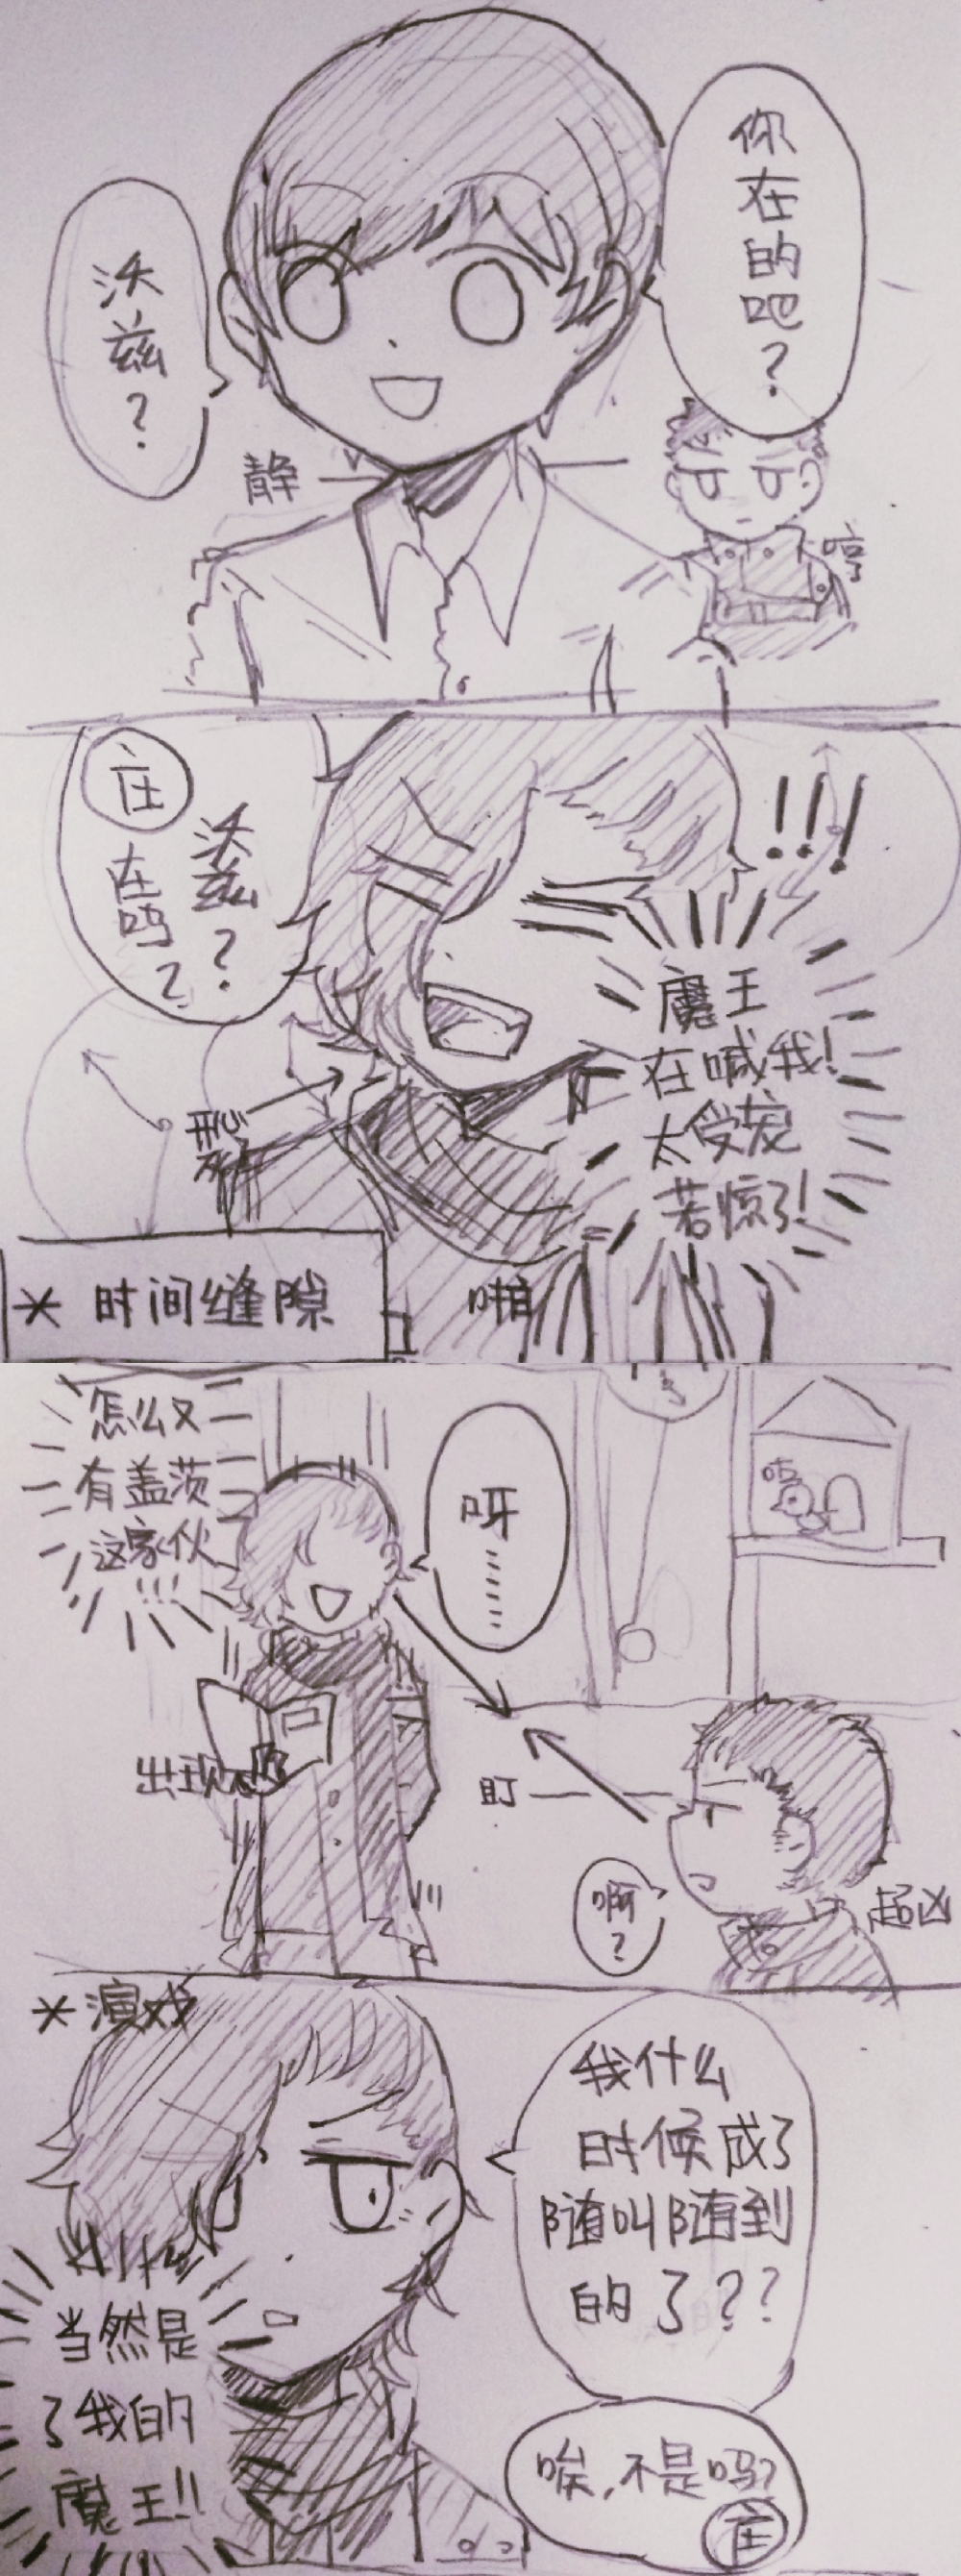 你在的吧？
沃兹？
静
哼
庄
沃兹？
在吗？
!!!
魔王
在喊我!
太受宠
若惊了!
围巾
* 时间缝隙
啪
怎么又
有盖茨
这家伙
!!!
呀……
咕
出现
盯——
啊？
超凶
* 演戏
我什么
时候成了
随叫随到
的了??
当然是
了我的
魔王!!
唉,不是吗?
庄